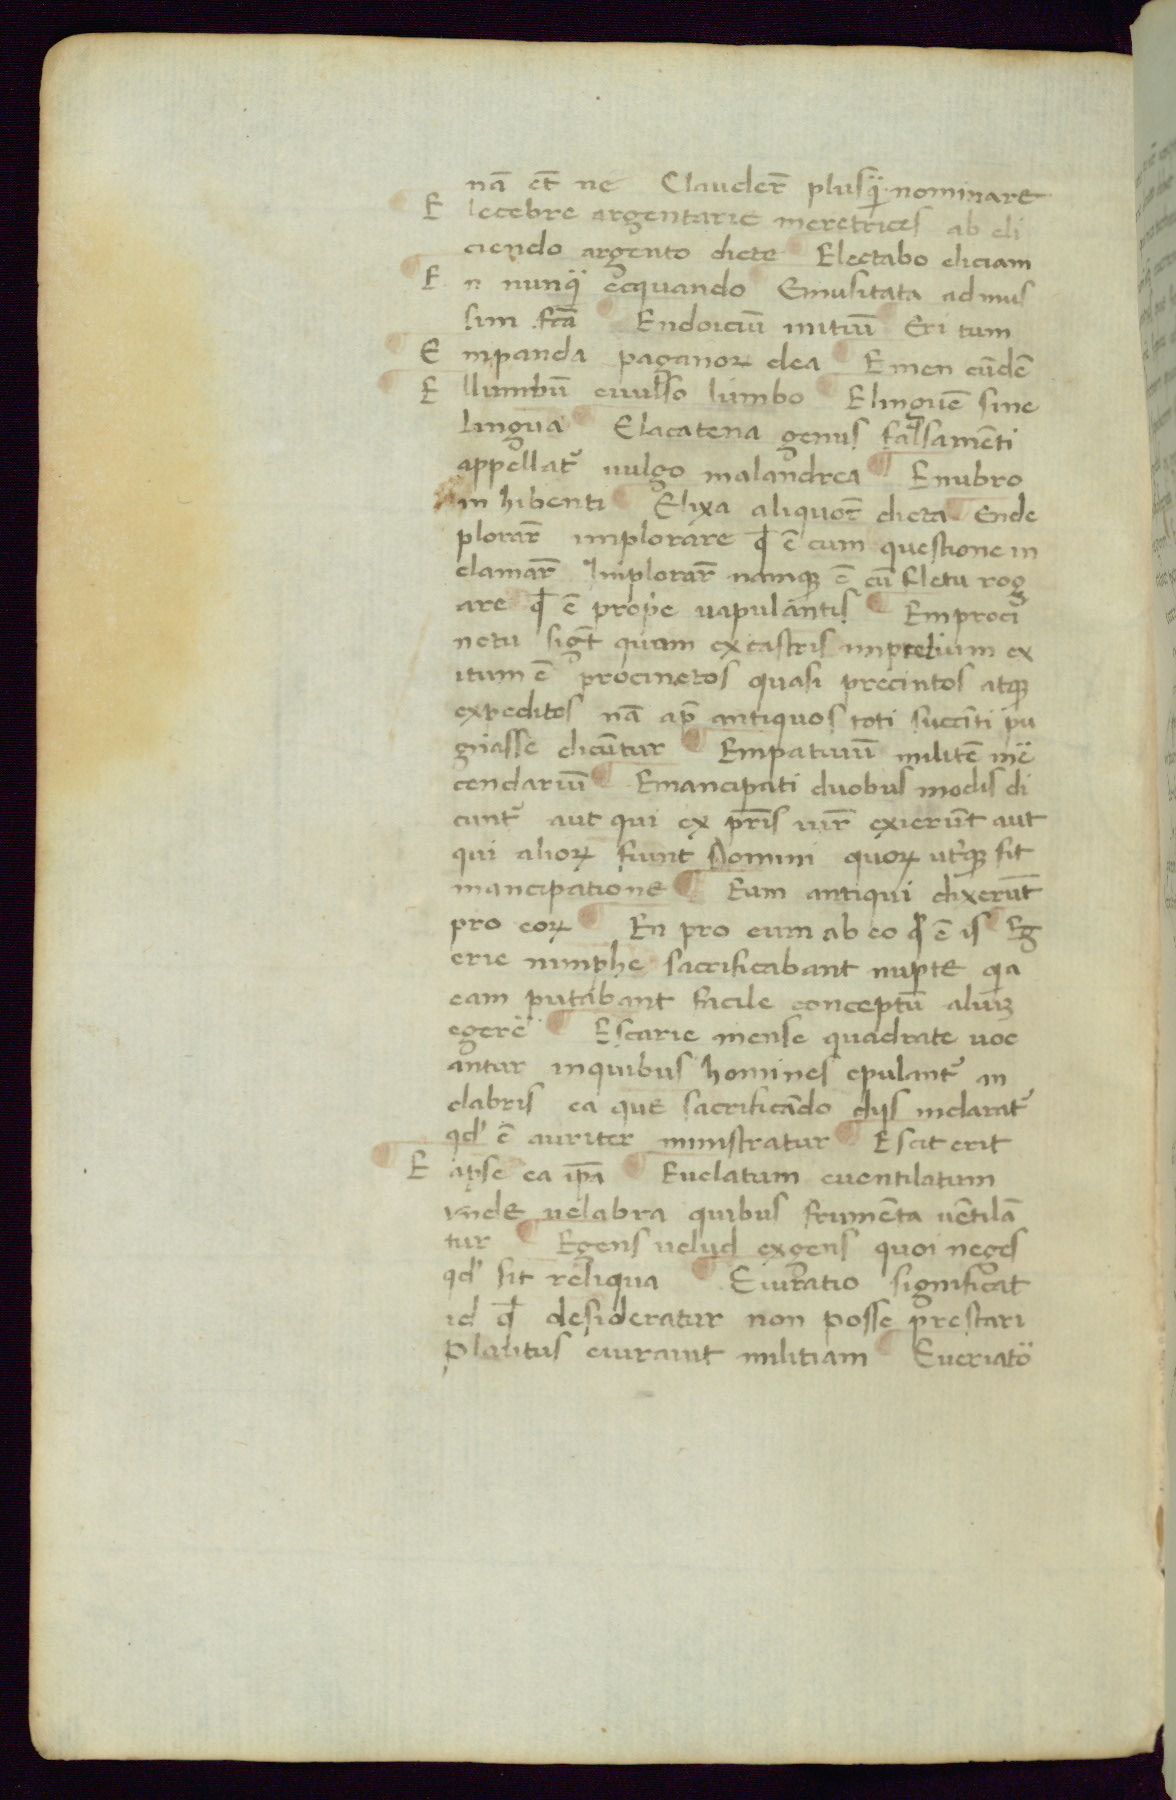 nā et̄ ne Clauder̄ plusq̈ nominare
E lecebre argentarie meretrices ab eli
ciendo argento dicte Electabo eliciam
E n nunq̈ ecquando Emusitata ad mus
sim fcā Endoiciū initiū Eri tum
E mpanda paganoꝝ dea Emen eūdē
E llumbū euulso lumbo Elinguē sine
lingua Elacatena genus falsamēti
appellat᷑ uulgo malandrea Enubro
in hibenti Elixa aliquot̄ dicta Ende
plorar̄ implorare qđ ē cum questione in
clamar̄ Implorar̄ namqꝫ ē cū fletu rog
are qđ ē prope uapulantis Emproci
nctu sigt̄ quam ex castris inprelium ex
itum ē procinctos quasi precintos atqꝫ
expeditos nā ap̄ antiquos toti succīti pu
gnasse dicūtur Empatiuū militē inë
cendariū Emancipati duobus modis di
cunt᷑ aut qui ex pr̄is iur̄ exierūt aut
qui alioꝝ fiunt Domini quoꝝ utꝫqꝫ fit
mancipatione Eum antiqui dixerūt
pro eoꝝ En pro eum ab eo qđ ē is Eg
erie nimphe sacrificabant nupte qia
eam putabant facile conceptū aluꝫ
egerë Escarie mense quadrate uoc
antur inquibus homines epulant᷑ an
clabris ea que sacrificādo dijs inclarat᷑
qđ ē auriter ministratur Escit erit
E apse ea ip̄a Euelatum euentilatum
vnde uelabra quibus frumēta uētilā
tur Egens uelud exgens quoi neges
qđ sit reliqua Eiuratio significat
id qđ desideratur non posse prestari
Plautus eiurauit militiam Eueriatö